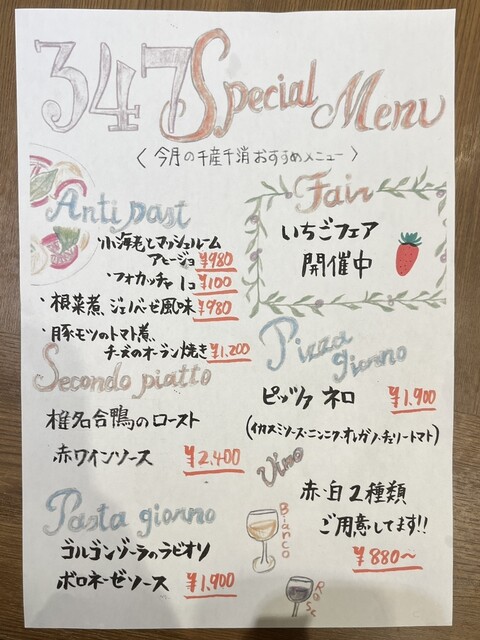 347 Special Menu
〈今月の千産千消おすすめメニュー〉
Antipast
・小海老とマッシュルーム
アヒージョ ¥980
・フォカッチャ 1コ ¥100
・根菜煮、ジェノベーゼ風味 ¥980
・豚モツのトマト煮、
チーズのオーブン焼き ¥1,200
Fair
いちごフェア
開催中
Secondo piatto
椎名合鴨のロースト
赤ワインソース ¥2,400
Pizza
giorno
ピッツァ ネロ ¥1,900
(イカスミソース・ニンニク・オレガノ・チェリートマト)
Pasta giorno
ゴルゴンゾーラのラビオリ
ボロネーゼソース ¥1,900
Vino
赤・白2種類
ご用意してます!!
¥880〜
Bianco